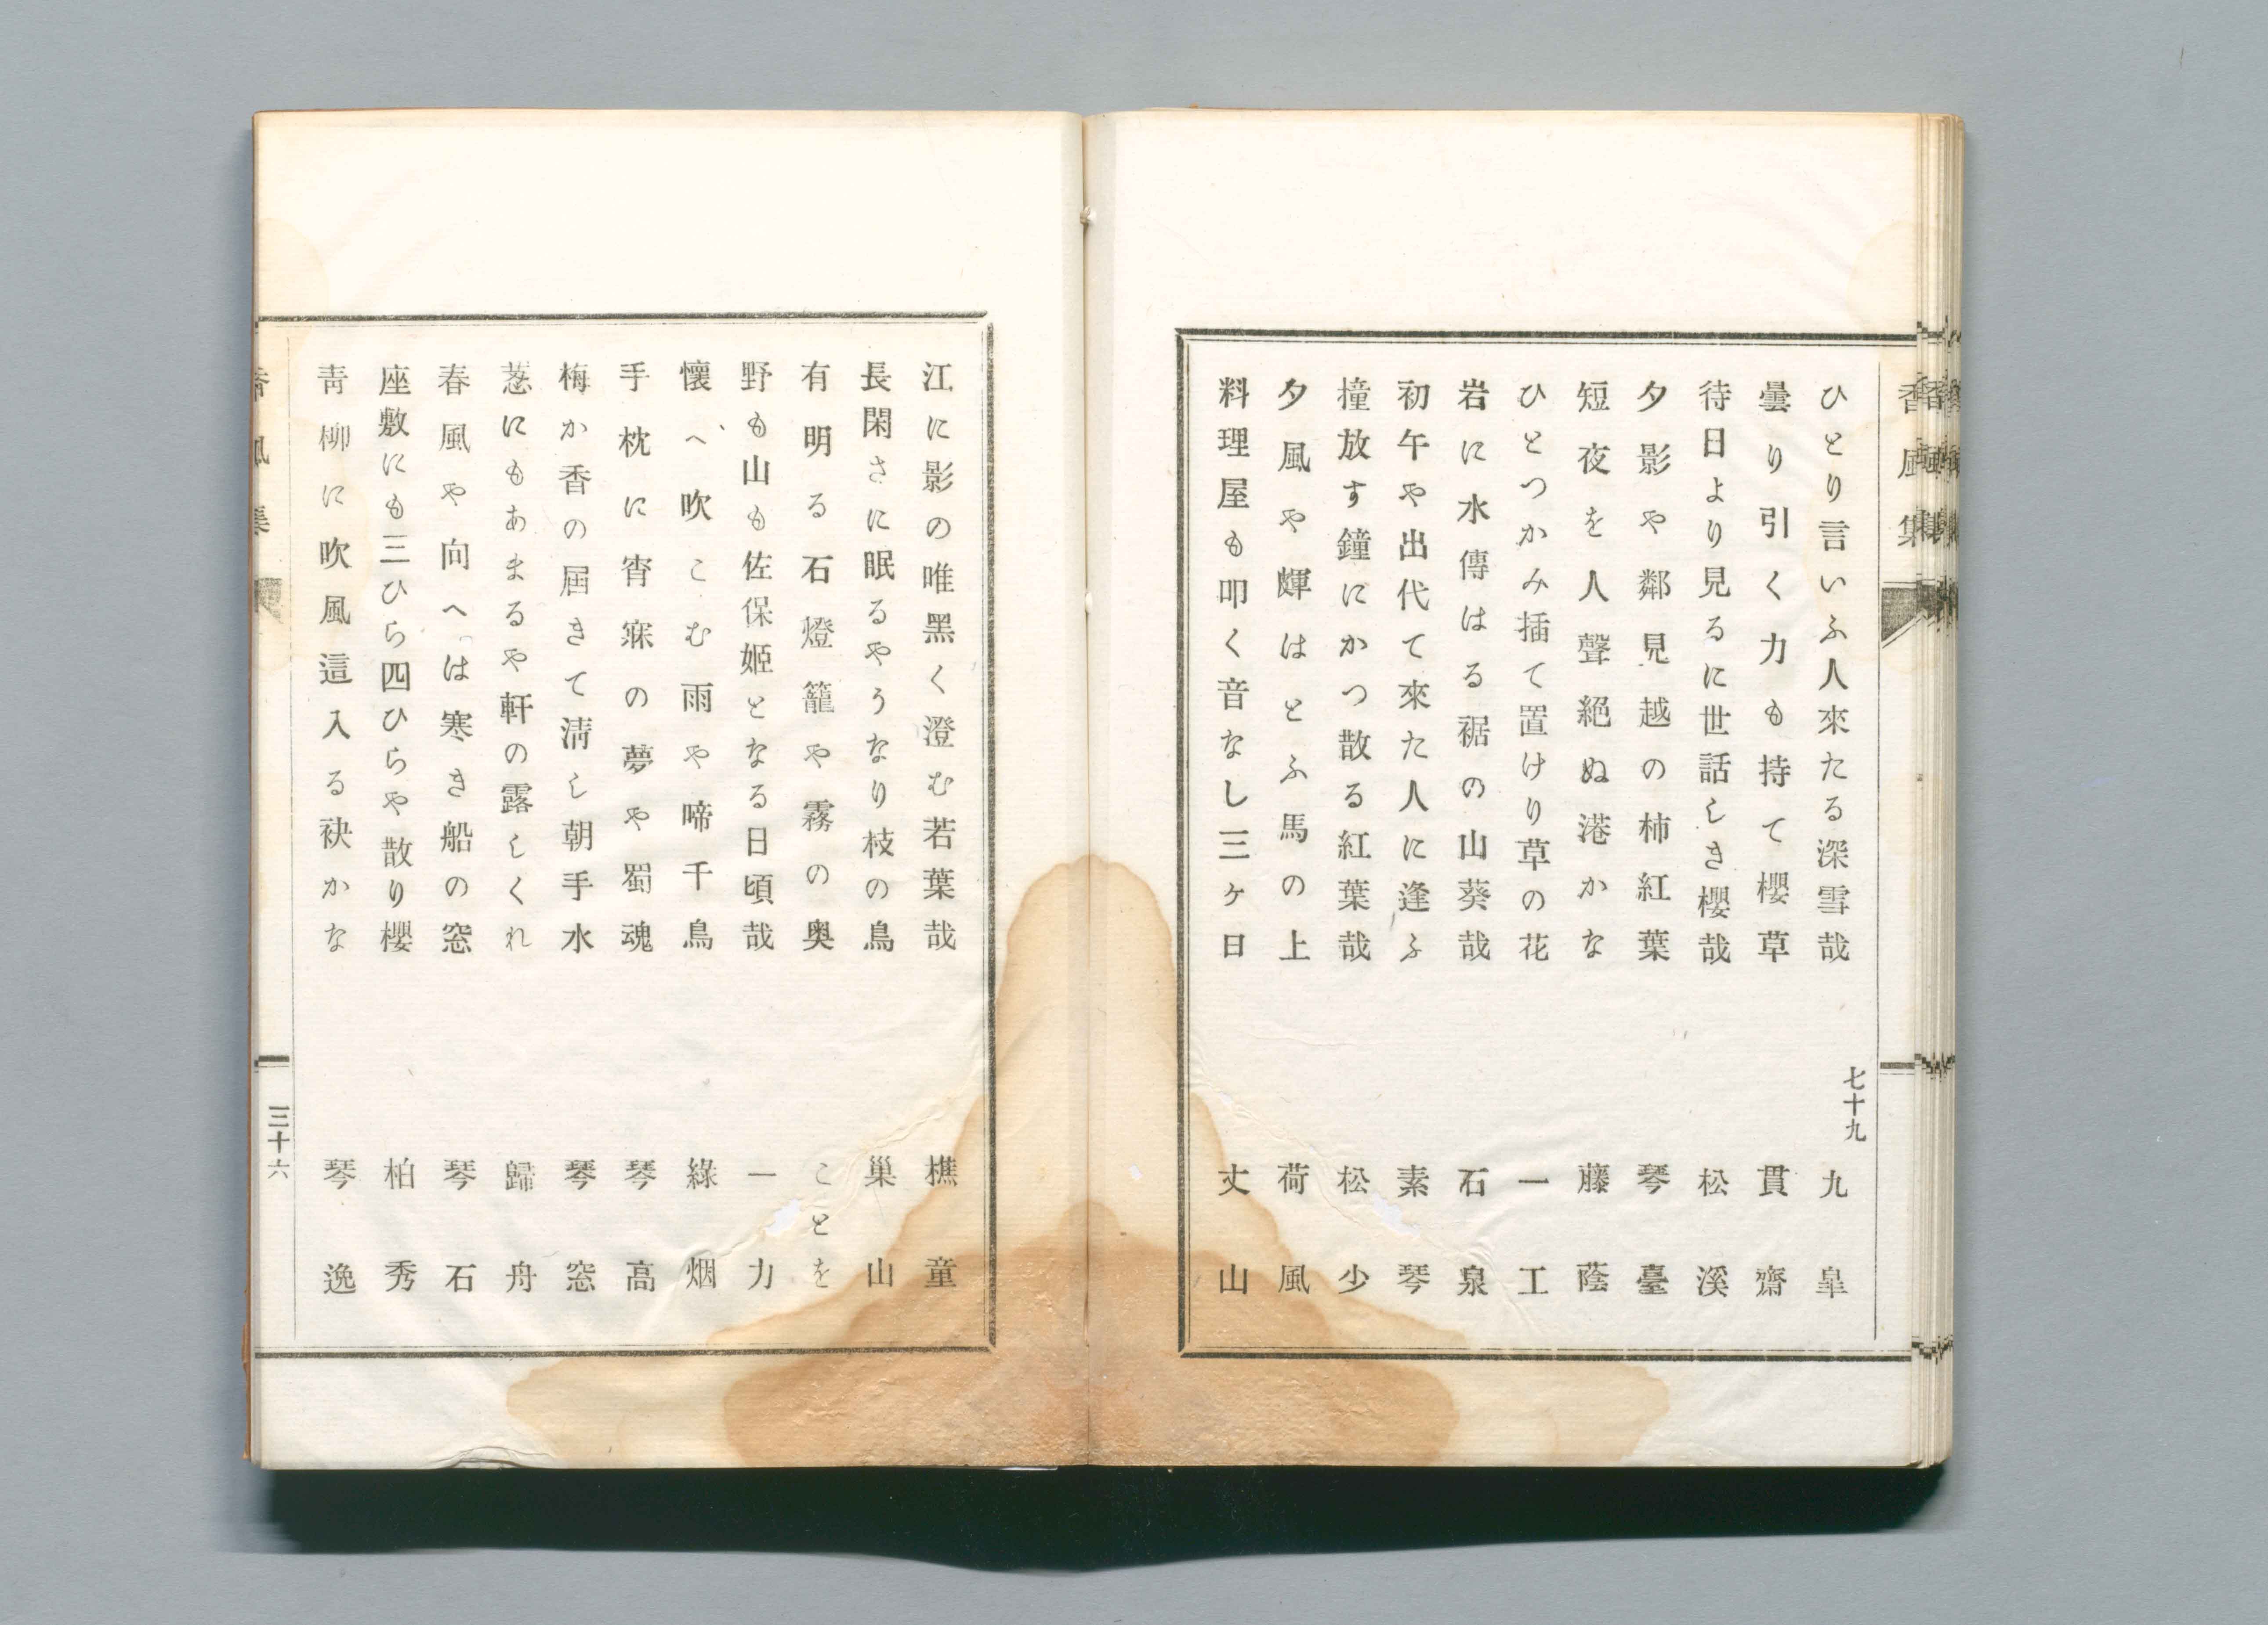 香風集
ひとり言いふ人來たる深雪哉 九皐
曇り引く力も持て櫻草 貫齋
待日より見るに世話しき櫻哉 松溪
夕影や鄰見越の柿紅葉 琴臺
短夜を人聲絕ぬ港かな 藤蔭
ひとつかみ插て置けり草の花 一工
岩に水傳はる裾の山葵哉 石泉
初午や出代て來た人に逢ふ 素琴
撞放す鐘にかつ散る紅葉哉 松少
夕風や輝はとふ馬の上 荷風
料理屋も叩く音なし三ヶ日 丈山
七十九
江に影の唯黑く澄む若葉哉 樵童
長閑さに眠るやうなり枝の鳥 巢山
有明る石燈籠や霧の奧 ことを
野も山も佐保姬となる日頃哉 一力
懷へ吹こむ雨や啼千鳥 綠烟
手枕に宵寐の夢や蜀魂 琴高
梅か香の屆きて淸し朝手水 琴窓
葱にもあまるや軒の露しくれ 歸舟
春風や向へは寒き船の窓 琴石
座敷にも三ひら四ひらや散り櫻 柏秀
靑柳に吹風這入る袂かな 琴逸
香風集
三十六